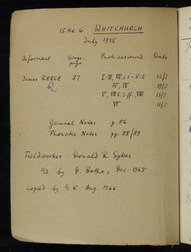 15 He 6 WHITCHURCH
July 1955
Informant Biogr. page Parts answered Date
James REECE 87 I-III, VII.1.1-5.2 12/7
R IV, IV 18/7
V, VII.5.1 ff, VIII 13/7
VI 11/7
General Notes p. 86
Phonetic Notes pp. 88/89
Fieldworker Donald R. Sykes
by G. Dec. 1965
Copied by G.K. Aug. 1966